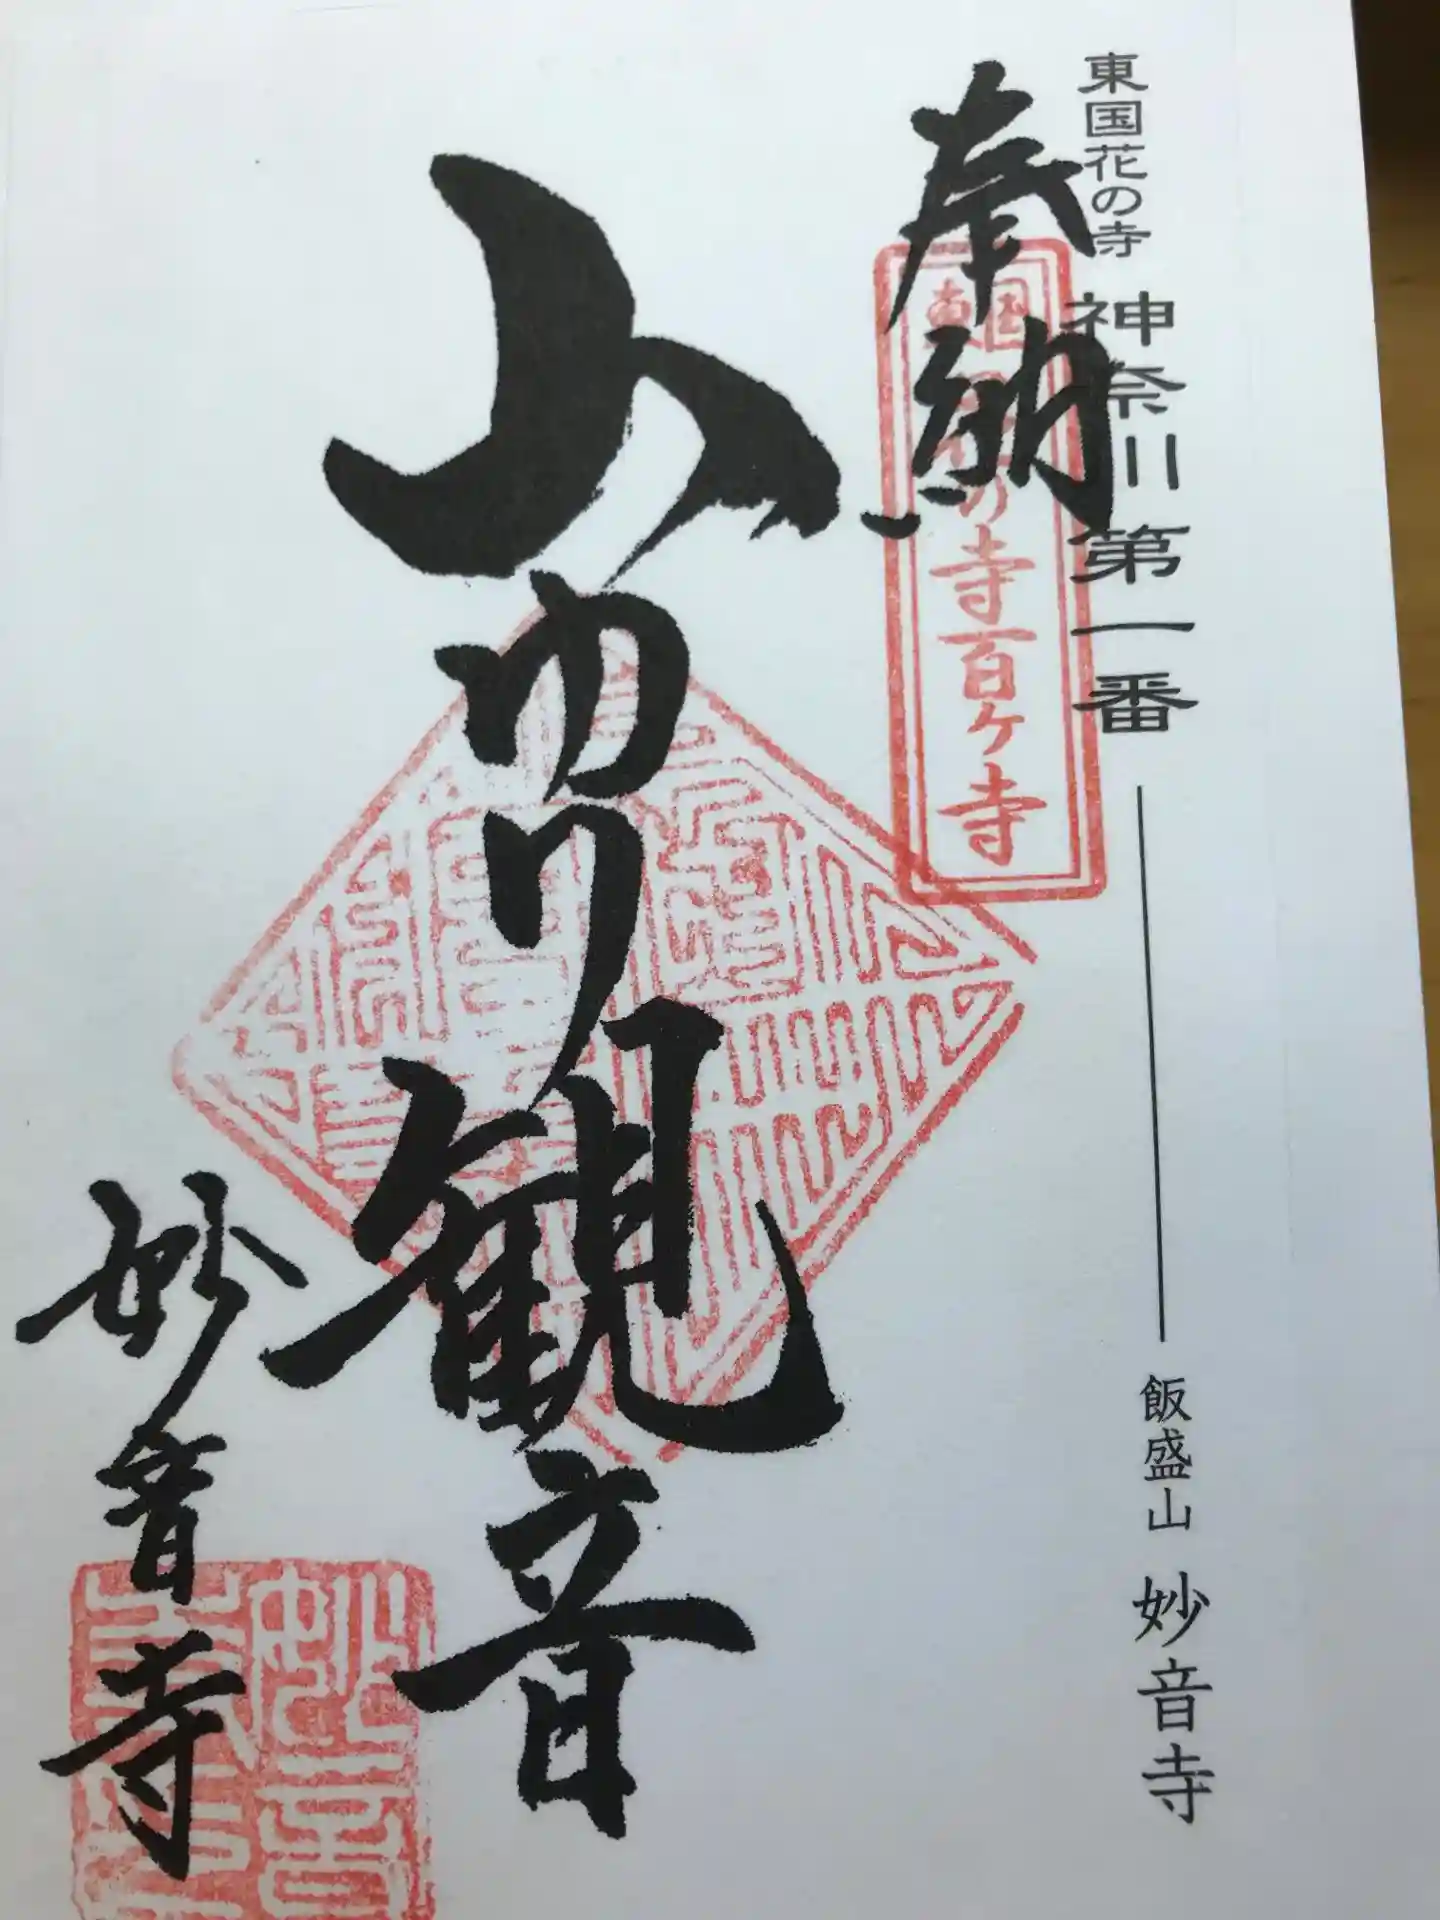 東国花の寺 神奈川第一番 飯盛山 妙音寺
奉納
東国花の寺百ヶ寺
山ゆり観音
妙音寺
妙音